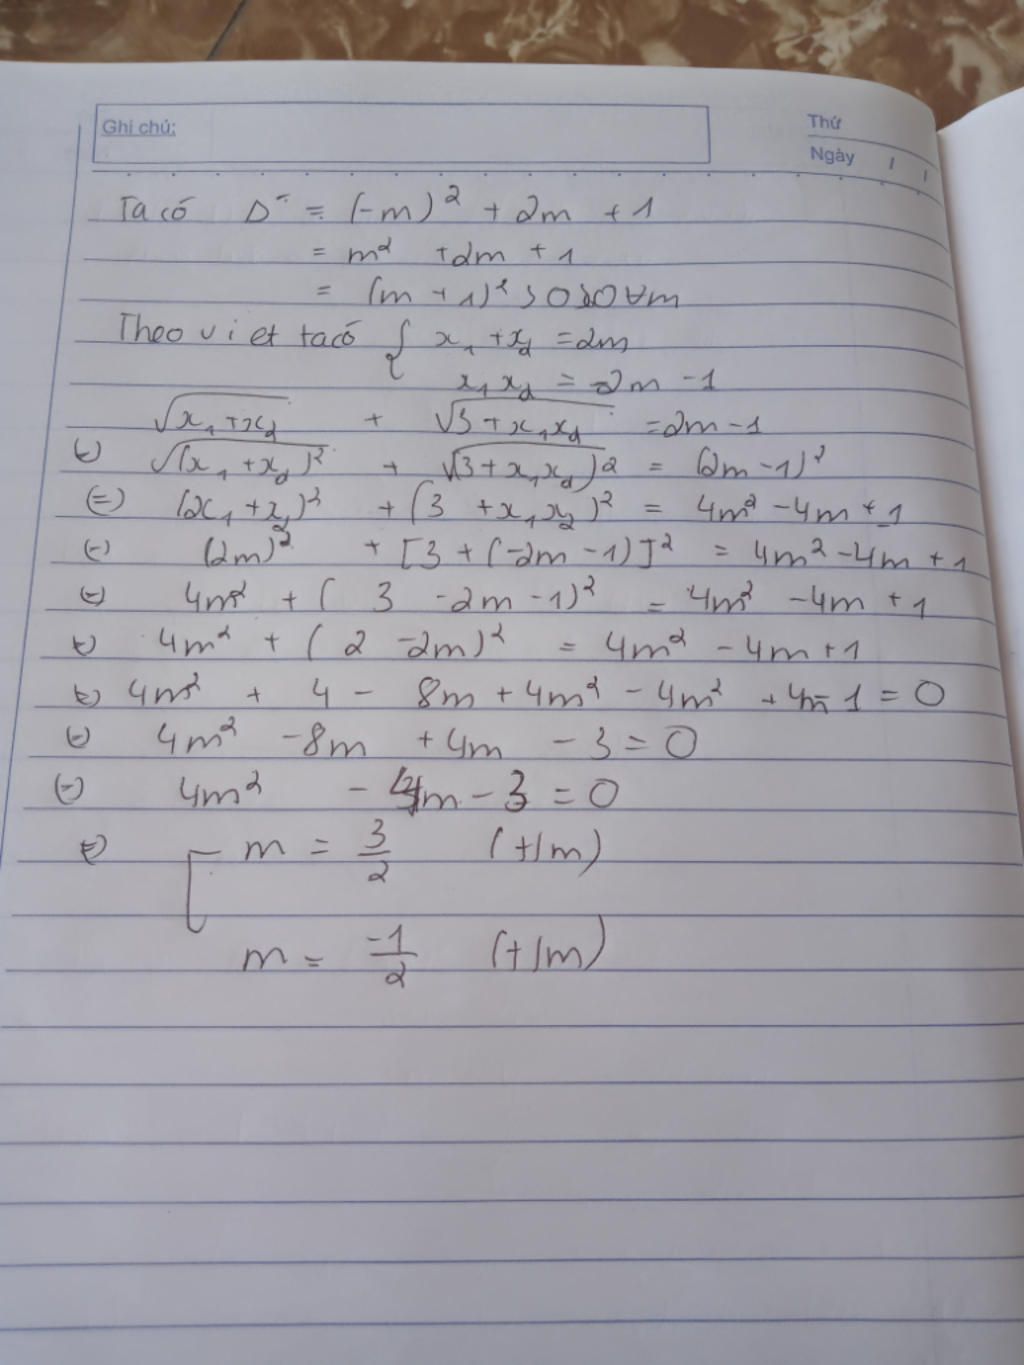 Ghi chú:
Thứ
Ngày / /
Ta có Δ' = (-m)² + 2m + 1
= m² + 2m + 1
= (m + 1)² > 0 ∀m
Theo vi et ta có { x₁ + x₂ = 2m
x₁x₂ = -2m - 1
√(x₁ + x₂) + √(3 + x₁x₂) = 2m - 1
(=) √(x₁ + x₂)² + √(3 + x₁x₂)² = (2m - 1)²
(=) (x₁ + x₂)² + (3 + x₁x₂)² = 4m² - 4m + 1
(=) (2m)² + [3 + (-2m - 1)]² = 4m² - 4m + 1
(=) 4m² + (3 - 2m - 1)² = 4m² - 4m + 1
(=) 4m² + (2 - 2m)² = 4m² - 4m + 1
(=) 4m² + 4 - 8m + 4m² - 4m² + 4m - 1 = 0
(=) 4m² - 8m + 4m - 3 = 0
(=) 4m² - 4m - 3 = 0
(=) [ m = 3/2 (t/m)
m = -1/2 (t/m)